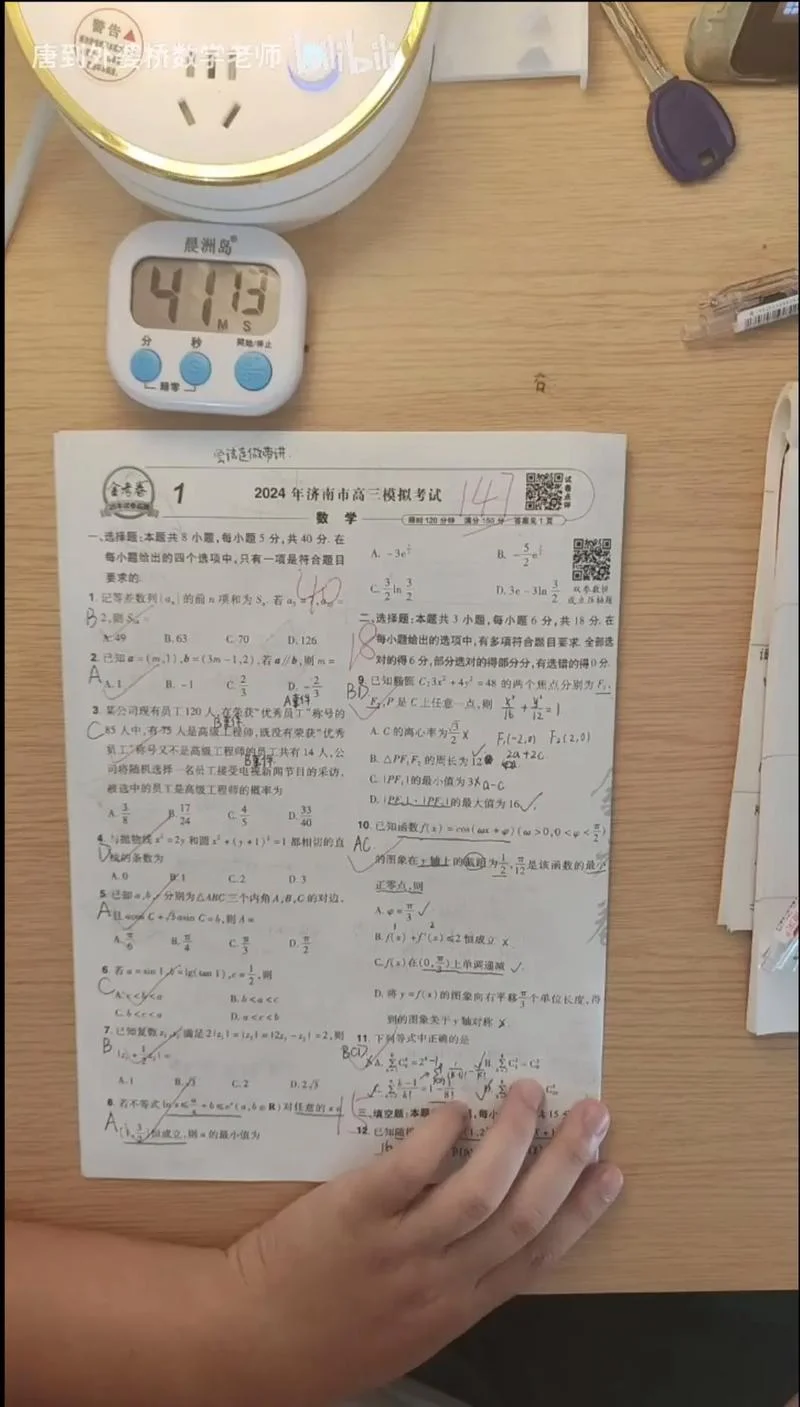 警告
唐到外婆桥数学老师 bilibili
晨洲岛
41 13
M S
分 秒 開始/停止
歸零
金考卷
1
2024年济南市高三模拟考试
147
试卷点评
数 学
限时120分钟 满分150分 答案见1页
一、选择题:本题共8小题,每小题5分,共40分.在
每小题给出的四个选项中,只有一项是符合题目
要求的.
40
1. 记等差数列{aₙ}的前n项和为Sₙ.若
B
A. 49 B. 63 C. 70 D. 126
2. 已知a=(m,1),b=(3m-1,2).若a∥b,则m=
A
A. 1 B. -1 C. 2/3 D. -2/3
A事件
3. 某公司现有员工120人,在荣获“优秀员工”称号的
B事件
C
85人中,有75人是高级工程师,既没有荣获“优秀
员工”称号又不是高级工程师的员工共有14人,公
司将随机选择一名员工接受电视新闻节目的采访,
被选中的员工是高级工程师的概率为
A. 3/8 B. 17/24 C. 4/5 D. 33/40
4. 与抛物线x²=2y和圆x²+(y+1)²=1都相切的直
D
线的条数为
A. 0 B. 1 C. 2 D. 3
5. 已知a,b,c分别为△ABC三个内角A,B,C的对边,
A
且acos C+√3asin C=b,则A=
A. π/6 B. π/4 C. π/3 D. π/2
6. 若a=sin 1,b=lg(tan 1),c=1/2,则
C
A. c<b<a B. b<a<c
C. b<c<a D. a<c<b
7. 已知复数z₁,z₂满足2|z₁|=|z₂|=|2z₁-z₂|=2,则
B
|z₁+1/2z₂|=
A. 1 B. √3 C. 2 D. 2√3
8. 若不等式ln x≤ +b≤eˣ(a,b∈R)对任意的x∈
A
恒成立,则a的最小值为
B. C. 3/2 ln 3/2 D. 3e-3ln 3/2
双参数恒成立压轴题
二、选择题:本题共3小题,每小题6分,共18分.在
18
每小题给出的选项中,有多项符合题目要求.全部选
对的得6分,部分选对的得部分分,有选错的得0分.
9. 已知椭圆C:3x²+4y²=48的两个焦点分别为F₁,
BD
F₂,P是C上任意一点,则 x²/16+y²/12=1
A. C的离心率为√3/2 × F₁(-2,0) F₂(2,0)
B. △PF₁F₂的周长为12 2a+2c
C. |PF₁|的最小值为3 × a-c
D. |PF₁|·|PF₂|的最大值为16 ✓
10. 已知函数f(x)=cos(ωx+φ)(ω>0,0<φ<π/2)
AC
的图象在y轴上的截距为1/2,π/12是该函数的最小
正零点,则
A. φ=π/3 ✓
B. f(x)+f′(x)≤2恒成立 ×
C. f(x)在(0,π/3)上单调递减 ✓
D. 将y=f(x)的图象向右平移π/3个单位长度,得
到的图象关于y轴对称 ×
11. 下列等式中正确的是
BCD
三、填空题:本题
12. 已知随